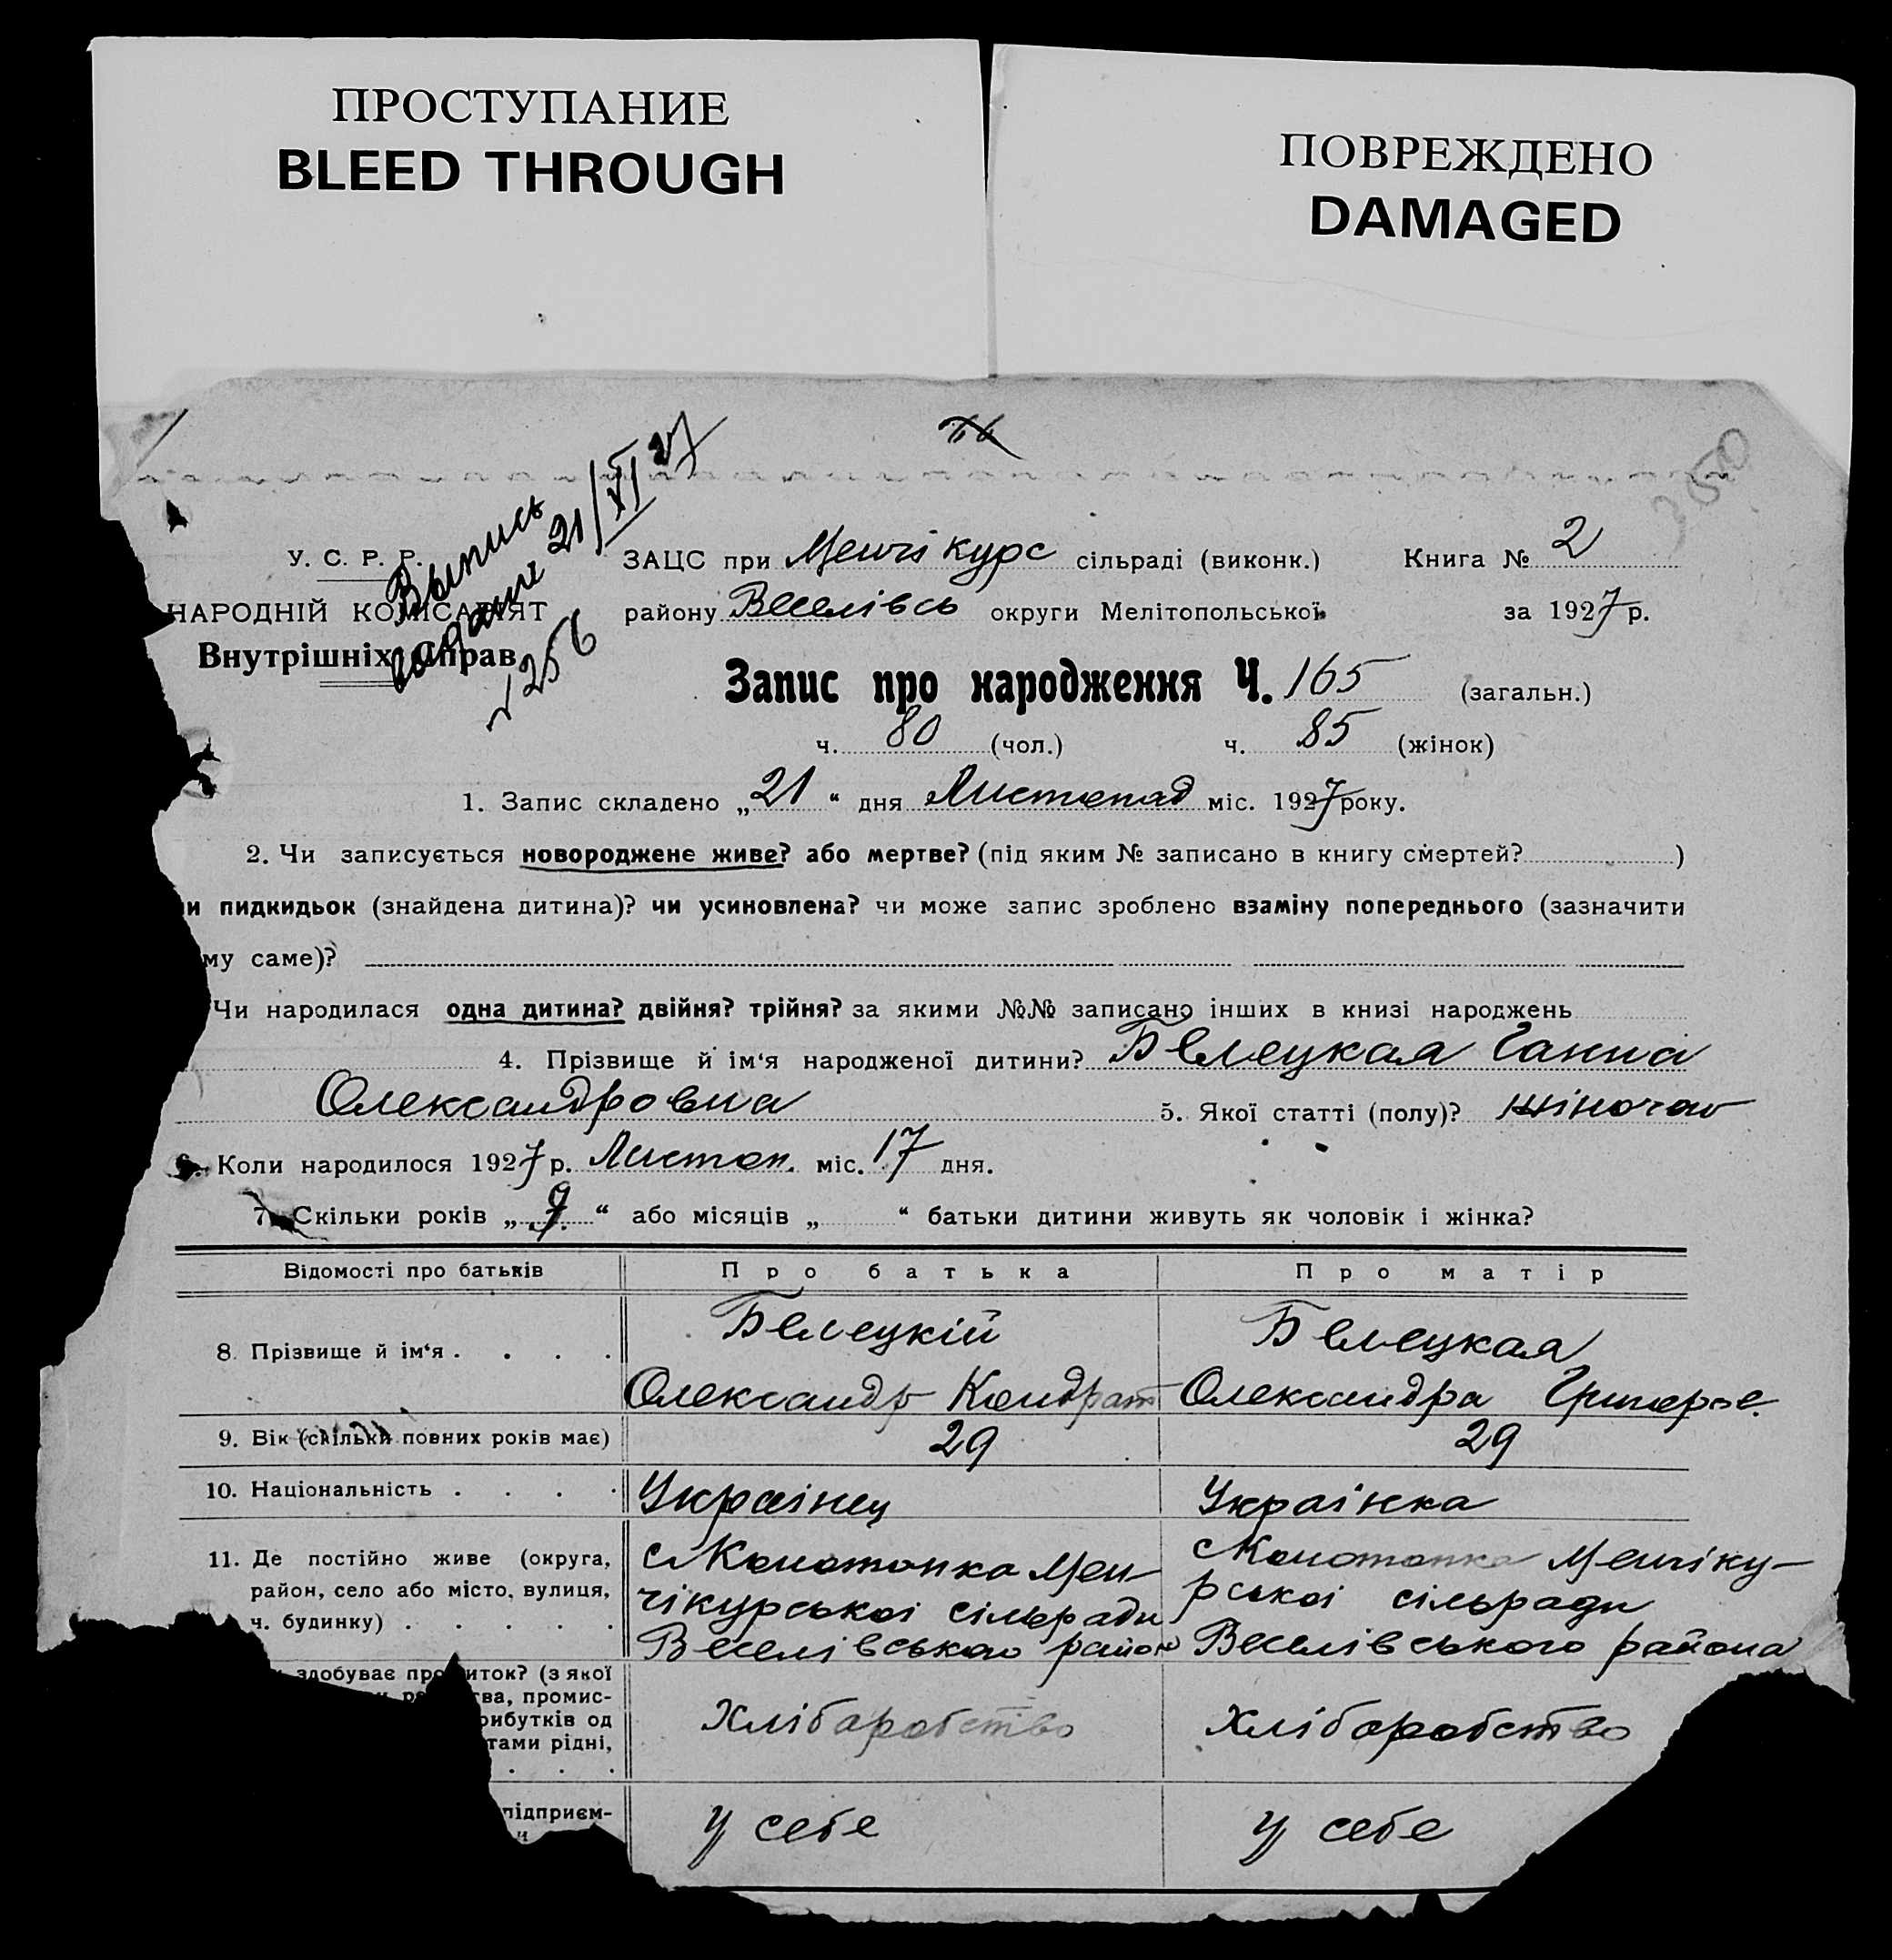 ПРОСТУПАНИЕ
BLEED THROUGH
ПОВРЕЖДЕНО
DAMAGED
350
Выпись
21/XI 27
№ 256
У. С. Р. Р.
НАРОДНІЙ КОМІСАРІЯТ
Внутрішніх Справ
ЗАЦС при Менчікурс сільраді (виконк.) Книга № 2
району Веселівсь округи Мелітопольської за 1927 р.
Запис про народження Ч. 165 (загальн.)
ч. 80 (чол.) ч. 85 (жінок)
1. Запис складено „21“ дня Листопад міс. 1927 року.
2. Чи записується новороджене живе? або мертве? (під яким № записано в книгу смертей? )
и пидкидьок (знайдена дитина)? чи усиновлена? чи може запис зроблено взаміну попереднього (зазначити
му саме)?
Чи народилася одна дитина? двійня? трійня? за якими №№ записано інших в книзі народжень
4. Прізвище й ім‘я народженої дитини? Белецкая Ганна
Олександровна 5. Якої статті (полу)? жіночою
6. Коли народилося 1927 р. Листоп. міс. 17 дня.
7. Скільки років „9“ або місяців „ “ батьки дитини живуть як чоловік і жінка?
Відомості про батьків Про батька Про матір
8. Прізвище й ім‘я . . . . Белецкій Белецкая
Олександр Кондрат Олександра Григорье.
9. Вік (скільки повних років має) 29 29
10. Національність . . . . Українец Українка
11. Де постійно живе (округа, с Конотопка Мен- с Конотопка Менчіку-
район, село або місто, вулиця, чікурської сільради рської сільради
ч. будинку) . . . . . Веселівського район Веселівського района
здобуває про иток? (з якої
тва, промис-
рибутків од Хліборобство Хліборобство
тами рідні,
підприєм- у себе у себе